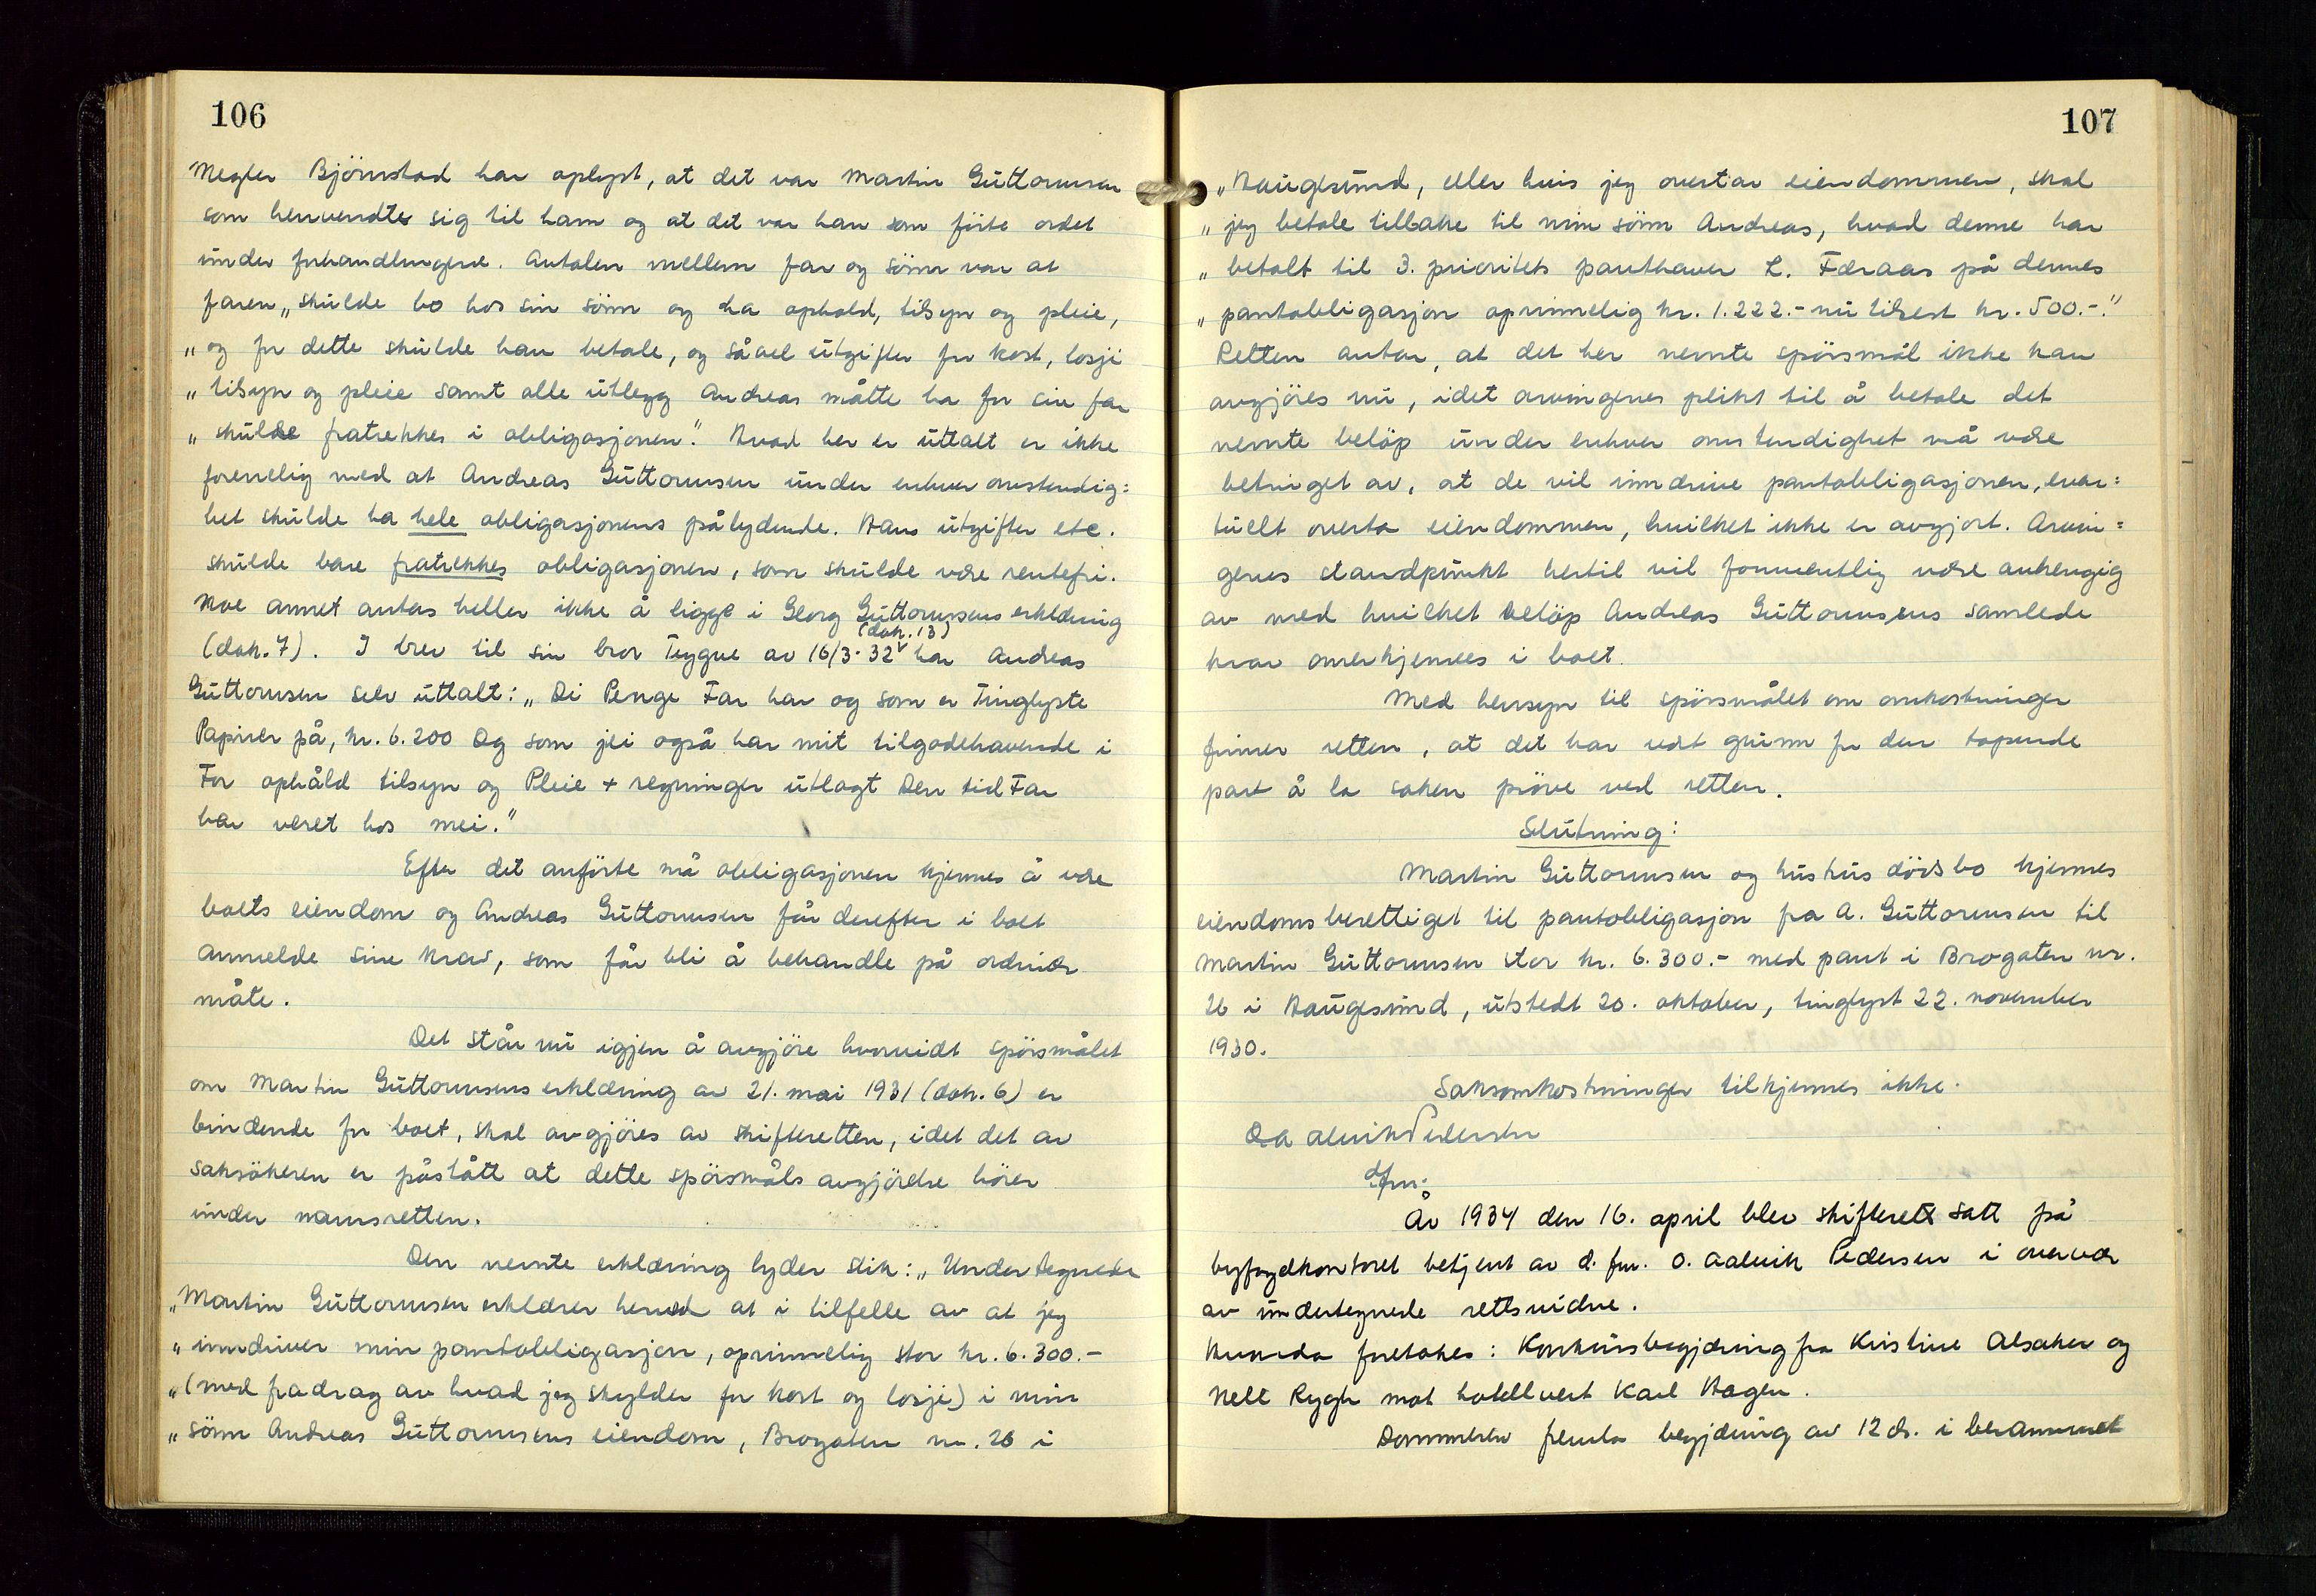 106
Megler Björnstad har oplyst, at det var Martin Guttormsen
som henvendte sig til ham og at det var han som förte ordet
under forhandlingene. Avtalen mellem far og sönn var at
faren „skulde bo hos sin sönn og ha ophold, tilsyn og pleie,
„og for dette skulde han betale, og såvel utgifter for kost, losji
„tilsyn og pleie samt alle utlegg Andreas måtte ha for sin far
„skulde fratrekkes i obligasjonen." Hvad her er uttalt er ikke
forenelig med at Andreas Guttormsen under enhver omstendig:
het skulde ha hele obligasjonens pålydende. Hans utgifter etc.
skulde bare fratrekkes obligasjonen, som skulde være rentefri.
Noe annet antas heller ikke å ligge i Georg Guttormsens erklæring
(dok. 13)
(dok. 7). I brev til sin bror Trygve av 16/3-32 har Andreas
Guttormsen selv uttalt: „Di Penge Far har og som er Tinglyste
Papirer på, kr. 6.200 Og som jei også har mit tilgodehavende i
For ophåld tilsyn og Pleie + regninger utlagt Den tid Far
har været hos mei."
Efter det anförte må obligasjonen kjennes å være
boets eiendom og Andreas Guttormsen får derefter i boet
anmelde sine krav, som får bli å behandle på ordinær
måte.
Det står nu igjen å avgjöre hvorvidt spörsmålet
om Martin Guttormsens erklæring av 21. mai 1931 (dok. 6) er
bindende for boet, skal avgjöres av skifteretten, idet det av
saksökeren er påstått at dette spörsmåls avgjörelse hörer
under namsretten.
Den nevnte erklæring lyder slik: „Undertegnede
„Martin Guttormsen erklærer herved at i tilfelle av at jeg
„inndriver min pantobligasjon, oprinnelig stor kr. 6.300.-
„(med fradrag av hvad jeg skylder for kost og losji) i min
„sönn Andreas Guttormsens eiendom, Brogaten nr. 26 i
107
„Haugesund, eller hvis jeg overtar eiendommen, skal
„jeg betale tilbake til min sönn Andreas, hvad denne har
„betalt til 3. prioritets panthaver L. Færaas på dennes
„pantobligasjon oprinnelig kr. 1.222.- nu tilrest kr. 500.-."
Retten antar, at det her nevnte spörsmål ikke kan
avgjöres nu, idet arvingenes plikt til å betale det
nevnte belöp under enhver omstendighet må være
betinget av, at de vil inndrive pantobligasjonen, even:
tuelt overta eiendommen, hvilket ikke er avgjort. Arvin=
genes standpunkt hertil vil formentlig være avhengig
av med hvilket belöp Andreas Guttormsens samlede
krav anerkjennes i boet.
Med hensyn til spörsmålet om omkostninger
finner retten, at det har vært grunn for den tapende
part å la saken pröve ved retten.
Slutning:
Martin Guttormsen og hustrus dödsbo kjennes
eiendomsberettiget til pantobligasjon fra A. Guttormsen til
Martin Guttormsen stor kr. 6.300.- med pant i Brogaten nr.
26 i Haugesund, utstedt 20. oktober, tinglyst 22. november
1930.
Saksomkostninger tilkjennes ikke.
O Aalvik Pedersen
d. fm.
År 1934 den 16. april blev skifterett satt på
byfogdkontoret betjent av d. fm. O. Aalvik Pedersen i overvær
av undertegnede rettsvidne.
Hvorda foretokes: Konkursbegjæring fra Kristine Alsaker og
Nelt Rygh mot hotellvert Karl Hagen.
Dommeren fremla begjæring av 12 ds. i berammet